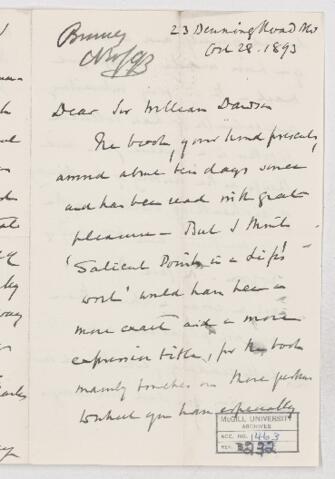 Burney
Nov 9/93
23 Denning Road NW
Oct 28. 1893
Dear Sir William Dawson
The book, your kind present,
arrived about ten days since
and has been read with great
pleasure – But I think
'Salient Points in a Life's
work' would have been a
more exact and a more
expressive title, for the book
mainly touches on those
to which you have especially
McGILL UNIVERSITY
ARCHIVES
ACC. NO. 1463
REF. 232